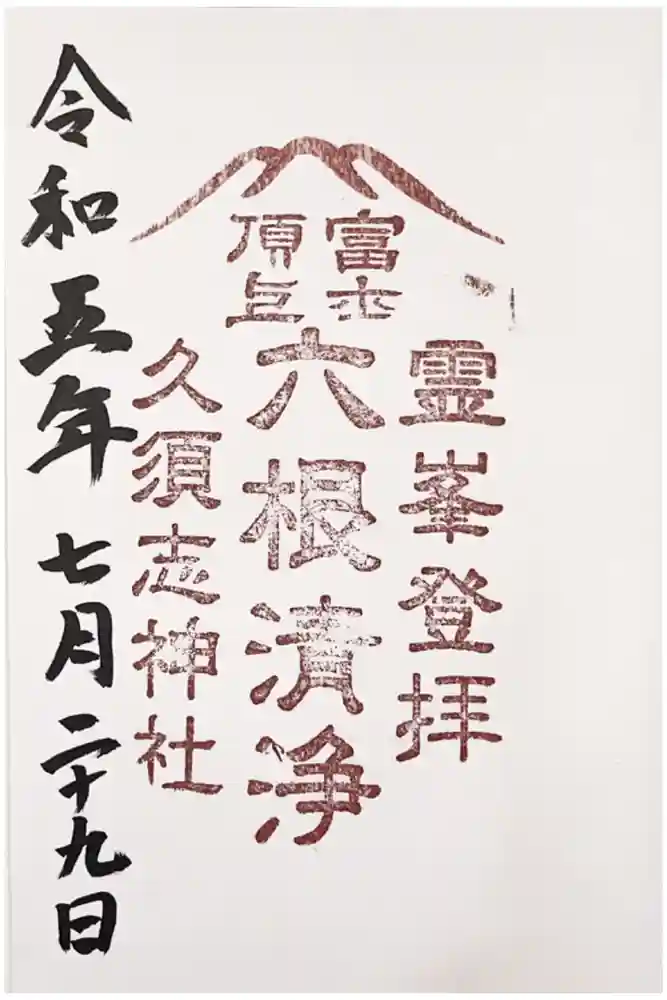 霊峯登拝
富士
頂上
六根清浄
久須志神社
令和五年 七月二十九日